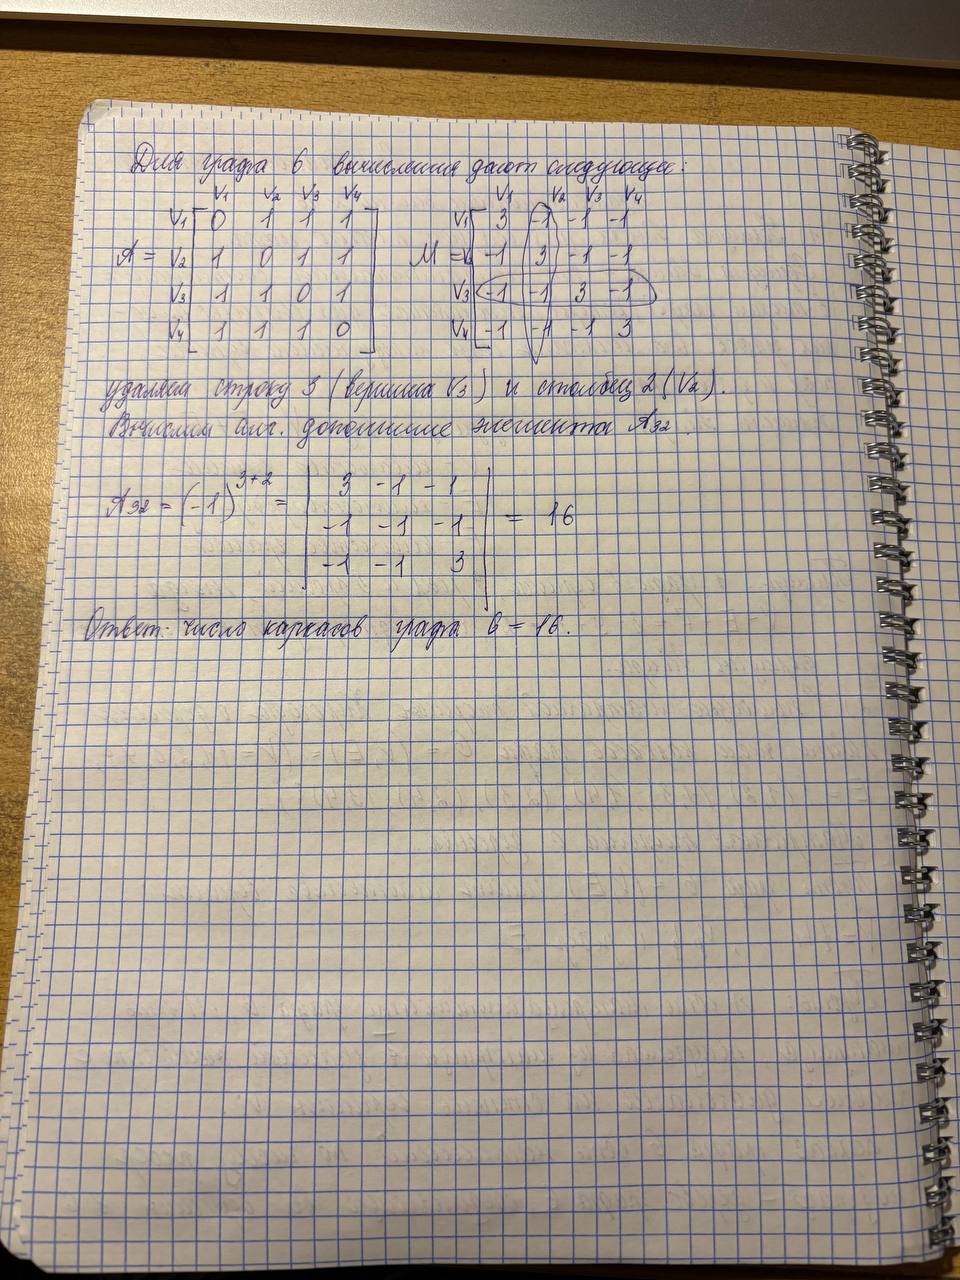 Для графа G вычисления дают следующее:
V1 V2 V3 V4 V1 V2 V3 V4
V1 0 1 1 1 V1 3 -1 -1 -1
A = V2 1 0 1 1 M = V2 -1 3 -1 -1
V3 1 1 0 1 V3 -1 -1 3 -1
V4 1 1 1 0 V4 -1 -1 -1 3
удаляем строку 3 (вершина V3) и столбец 2 (V2).
Вычислим алг. дополнение элемента A32
A32 = (-1)^3+2 = | 3 -1 -1 |
| -1 -1 -1 | = 16
| -1 -1 3 |
Ответ: число каркасов графа G = 16.